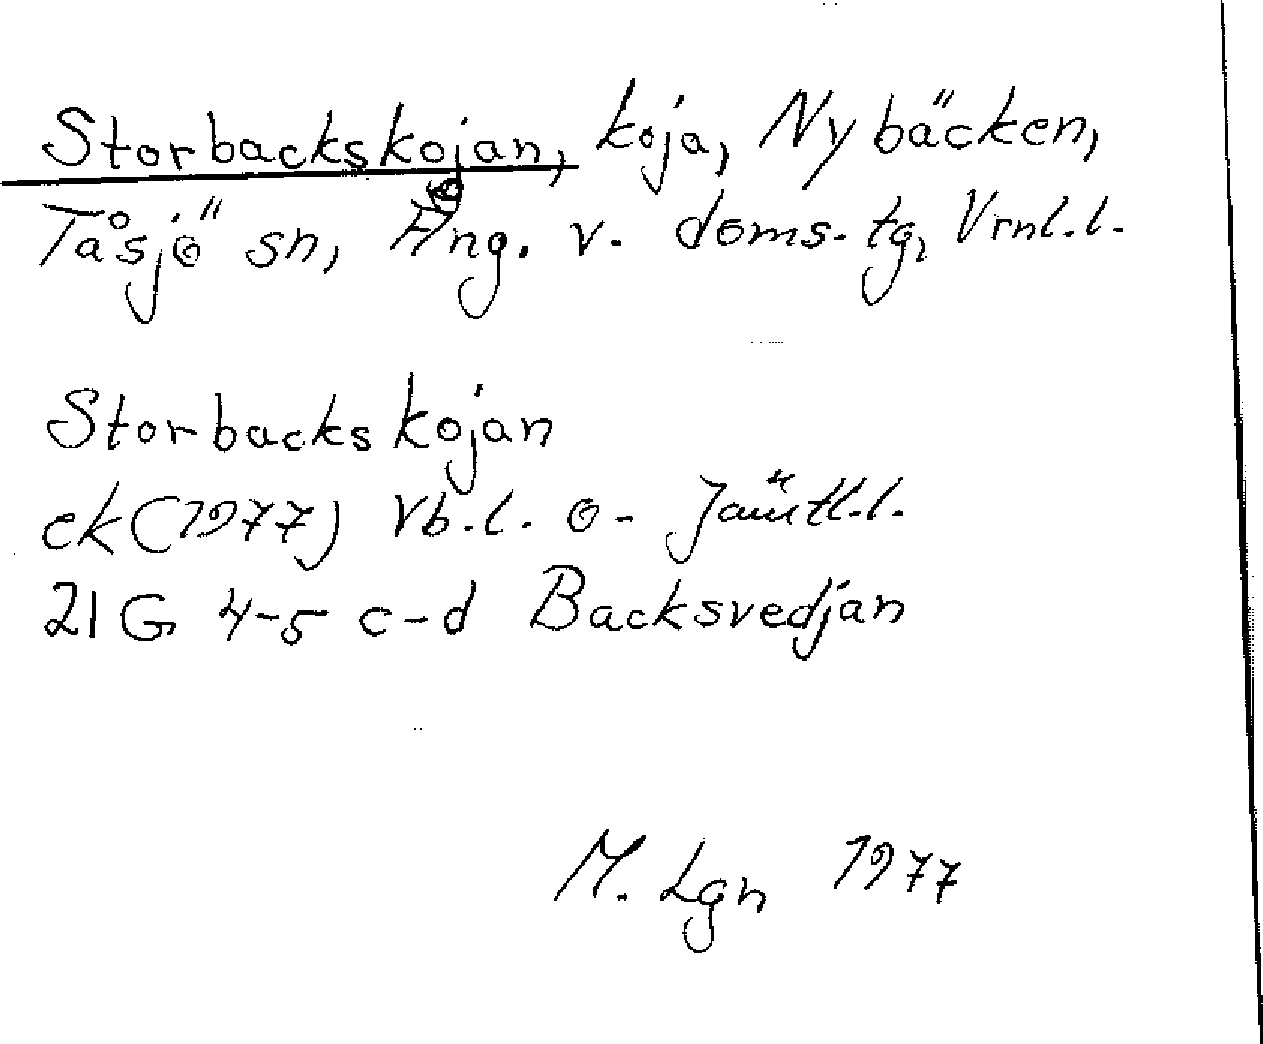 Storbackskojan, koja, Nybäcken,
Tåsjö sn, Ång. v. doms. tg, Vrnl.l.
Storbackskojan
ek (1977) Vb.l. o - Jämtl.l.
21G 4-5 c-d Backsvedjan
M. Lgn 1977